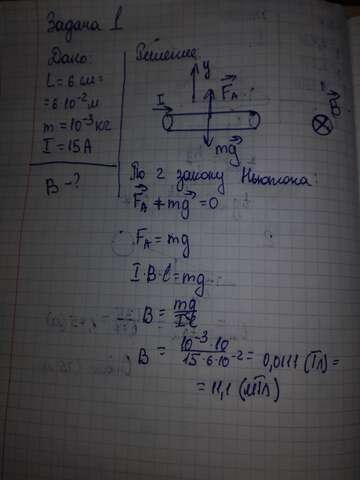 Задача 1
Дано:
L = 6 см =
= 6·10⁻² м
m = 10⁻³ кг
I = 15 А
B - ?
Решение:
y
F⃗A
I
B⃗
mg⃗
По 2 закону Ньютона:
F⃗A + mg⃗ = 0
FA = mg
I·B·l = mg
B = mg/Il
B = 10⁻³·10/15·6·10⁻² = 0,0111 (Тл) =
= 11,1 (мТл)